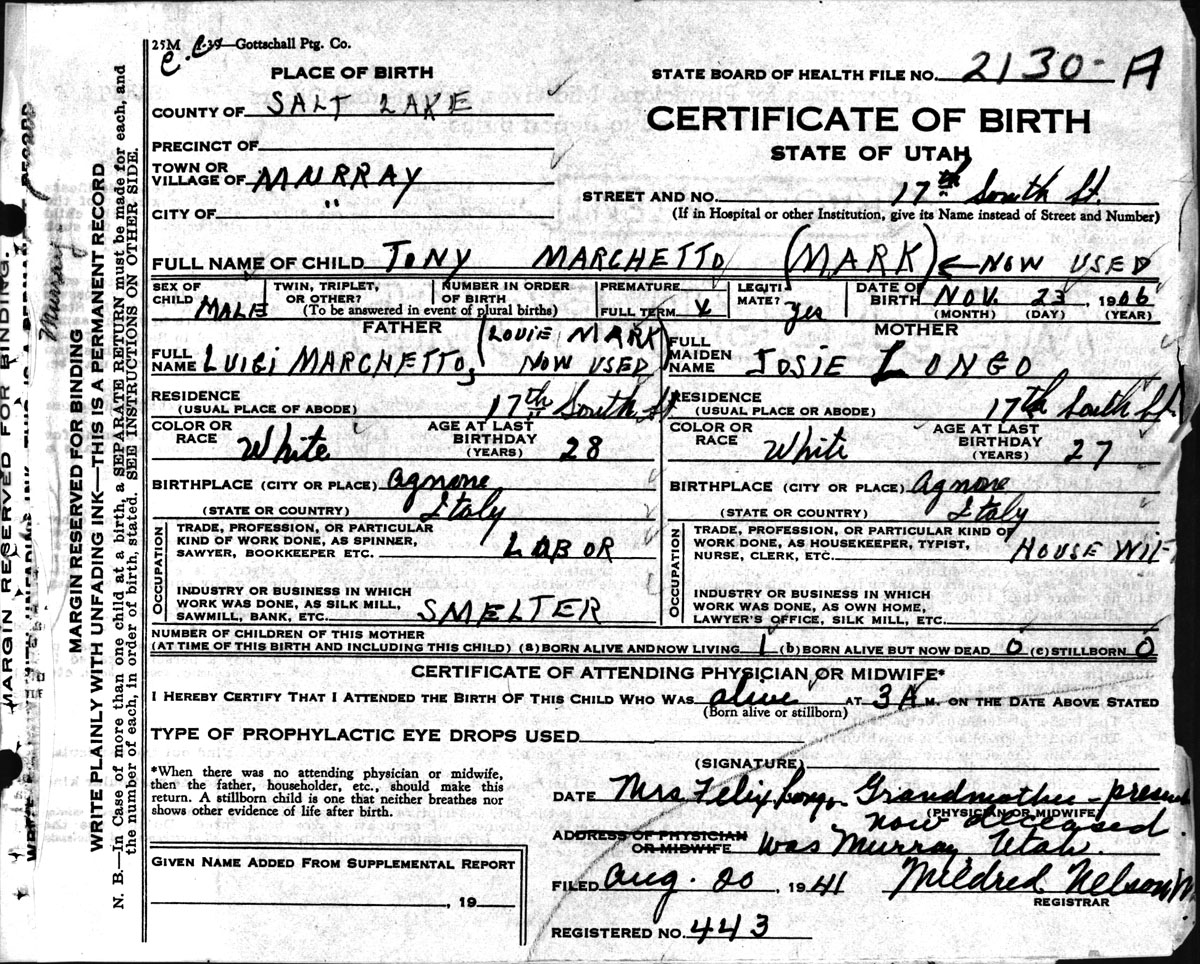 25M 1-39—Gottschall Ptg. Co.
PLACE OF BIRTH
STATE BOARD OF HEALTH FILE NO. 2130-A
COUNTY OF SALT LAKE
CERTIFICATE OF BIRTH
STATE OF UTAH
PRECINCT OF
TOWN OR VILLAGE OF MURRAY
STREET AND NO. 17th South St.
(If in Hospital or other Institution, give its Name instead of Street and Number)
CITY OF "
FULL NAME OF CHILD TONY MARCHETTO (MARK) ← NOW USED
SEX OF CHILD MALE
TWIN, TRIPLET, OR OTHER?
NUMBER IN ORDER OF BIRTH
(To be answered in event of plural births)
PREMATURE
FULL TERM X
LEGITIMATE? Yes
DATE OF BIRTH NOV. 23, 1906
(MONTH) (DAY) (YEAR)
FATHER
FULL NAME LUIGI MARCHETTO, (LOUIE MARK NOW USED)
MOTHER
FULL MAIDEN NAME JOSIE LONGO
RESIDENCE (USUAL PLACE OF ABODE) 17th South St.
RESIDENCE (USUAL PLACE OR ABODE) 17th South St.
COLOR OR RACE White AGE AT LAST BIRTHDAY (YEARS) 28
COLOR OR RACE White AGE AT LAST BIRTHDAY (YEARS) 27
BIRTHPLACE (CITY OR PLACE) Agnone
(STATE OR COUNTRY) Italy
BIRTHPLACE (CITY OR PLACE) Agnone
(STATE OR COUNTRY) Italy
OCCUPATION
TRADE, PROFESSION, OR PARTICULAR
KIND OF WORK DONE, AS SPINNER,
SAWYER, BOOKKEEPER ETC. LABOR
INDUSTRY OR BUSINESS IN WHICH
WORK WAS DONE, AS SILK MILL,
SAWMILL, BANK, ETC. SMELTER
OCCUPATION
TRADE, PROFESSION, OR PARTICULAR KIND OF
WORK DONE, AS HOUSEKEEPER, TYPIST,
NURSE, CLERK, ETC. HOUSE WIF
INDUSTRY OR BUSINESS IN WHICH
WORK WAS DONE, AS OWN HOME,
LAWYER'S OFFICE, SILK MILL, ETC.
NUMBER OF CHILDREN OF THIS MOTHER
(AT TIME OF THIS BIRTH AND INCLUDING THIS CHILD) (a) BORN ALIVE AND NOW LIVING 1 (b) BORN ALIVE BUT NOW DEAD 0 (c) STILLBORN 0
CERTIFICATE OF ATTENDING PHYSICIAN OR MIDWIFE*
I HEREBY CERTIFY THAT I ATTENDED THE BIRTH OF THIS CHILD WHO WAS alive AT 3 A M. ON THE DATE ABOVE STATED
(Born alive or stillborn)
TYPE OF PROPHYLACTIC EYE DROPS USED
(SIGNATURE)
*When there was no attending physician or midwife,
then the father, householder, etc., should make this
return. A stillborn child is one that neither breathes nor
shows other evidence of life after birth.
DATE Mrs Felix Longo Grandmother - present
(PHYSICIAN OR MIDWIFE)
now deceased.
ADDRESS OF PHYSICIAN OR MIDWIFE was Murray, Utah.
GIVEN NAME ADDED FROM SUPPLEMENTAL REPORT
, 19
FILED Aug. 20, 1941 Mildred Nelson
REGISTRAR
REGISTERED NO. 443
MARGIN RESERVED FOR BINDING.
Murray
MARGIN RESERVED FOR BINDING
WRITE PLAINLY WITH UNFADING INK—THIS IS A PERMANENT RECORD
N. B.—In Case of more than one child at a birth, a SEPARATE RETURN must be made for each, and
the number of each, in order of birth, stated. SEE INSTRUCTIONS ON OTHER SIDE.